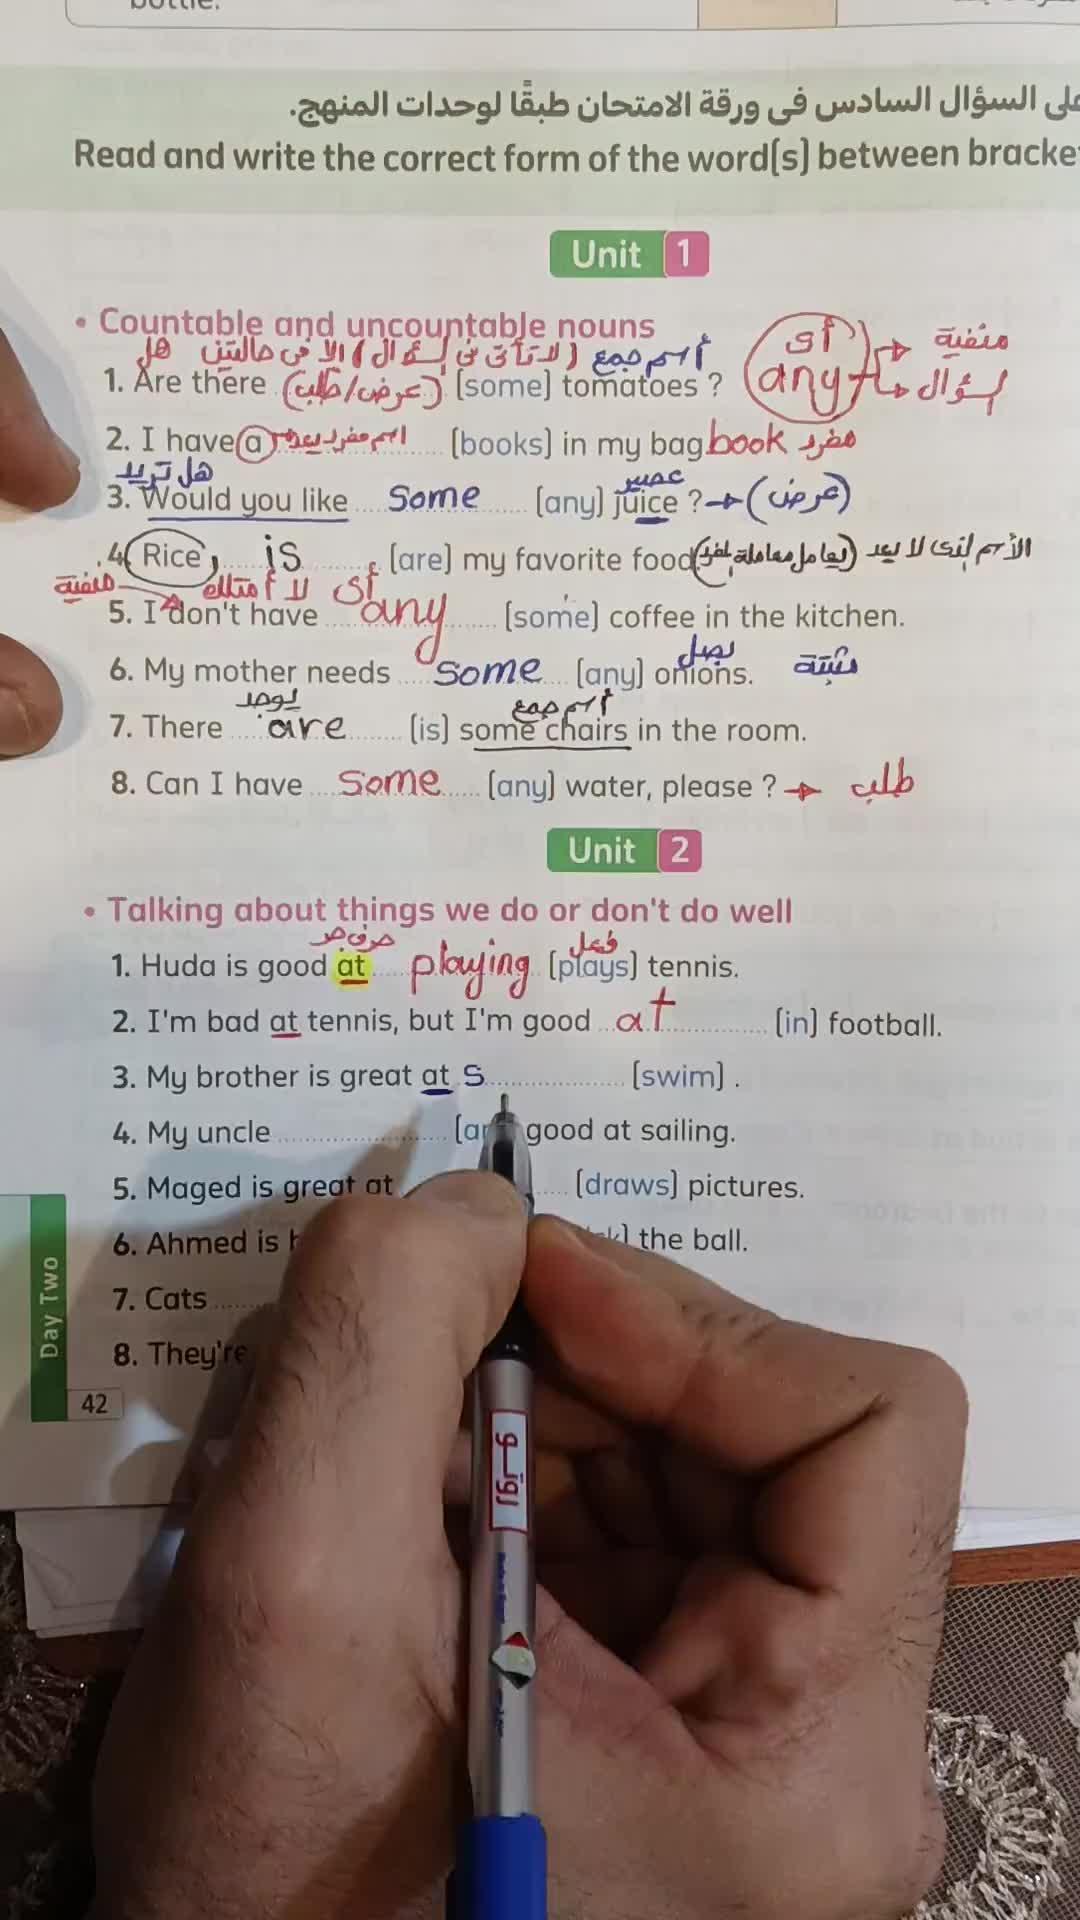 bottle.
على السؤال السادس فى ورقة الامتحان طبقًا لوحدات المنهج.
Read and write the correct form of the word(s) between bracke
Unit 1
• Countable and uncountable nouns
اسم جمع (لا تأتى فى السؤال) الا فى حالتين هل
أى
any
منفية
سؤال
1. Are there (عرض/طلب) [some] tomatoes ?
2. I have a اسم مفرد يعد [books] in my bag book مفرد
هل تريد
عصير
3. Would you like some [any] juice ? → (عرض)
4. Rice, is [are] my favorite food. (يعامل معاملة المفرد) الأسم الذى لا يعد
منفية لا أمتلك أى
5. I don't have any [some] coffee in the kitchen.
بصل
6. My mother needs some [any] onions. مثبتة
يوجد
اسم جمع
7. There are [is] some chairs in the room.
8. Can I have some [any] water, please ? → طلب
Unit 2
• Talking about things we do or don't do well
حرف جر
فعل
1. Huda is good at playing [plays] tennis.
2. I'm bad at tennis, but I'm good at [in] football.
3. My brother is great at s [swim] .
4. My uncle good at sailing.
5. Maged is great at [draws] pictures.
6. Ahmed is the ball.
7. Cats
8. They're
Day Two
42
روتو